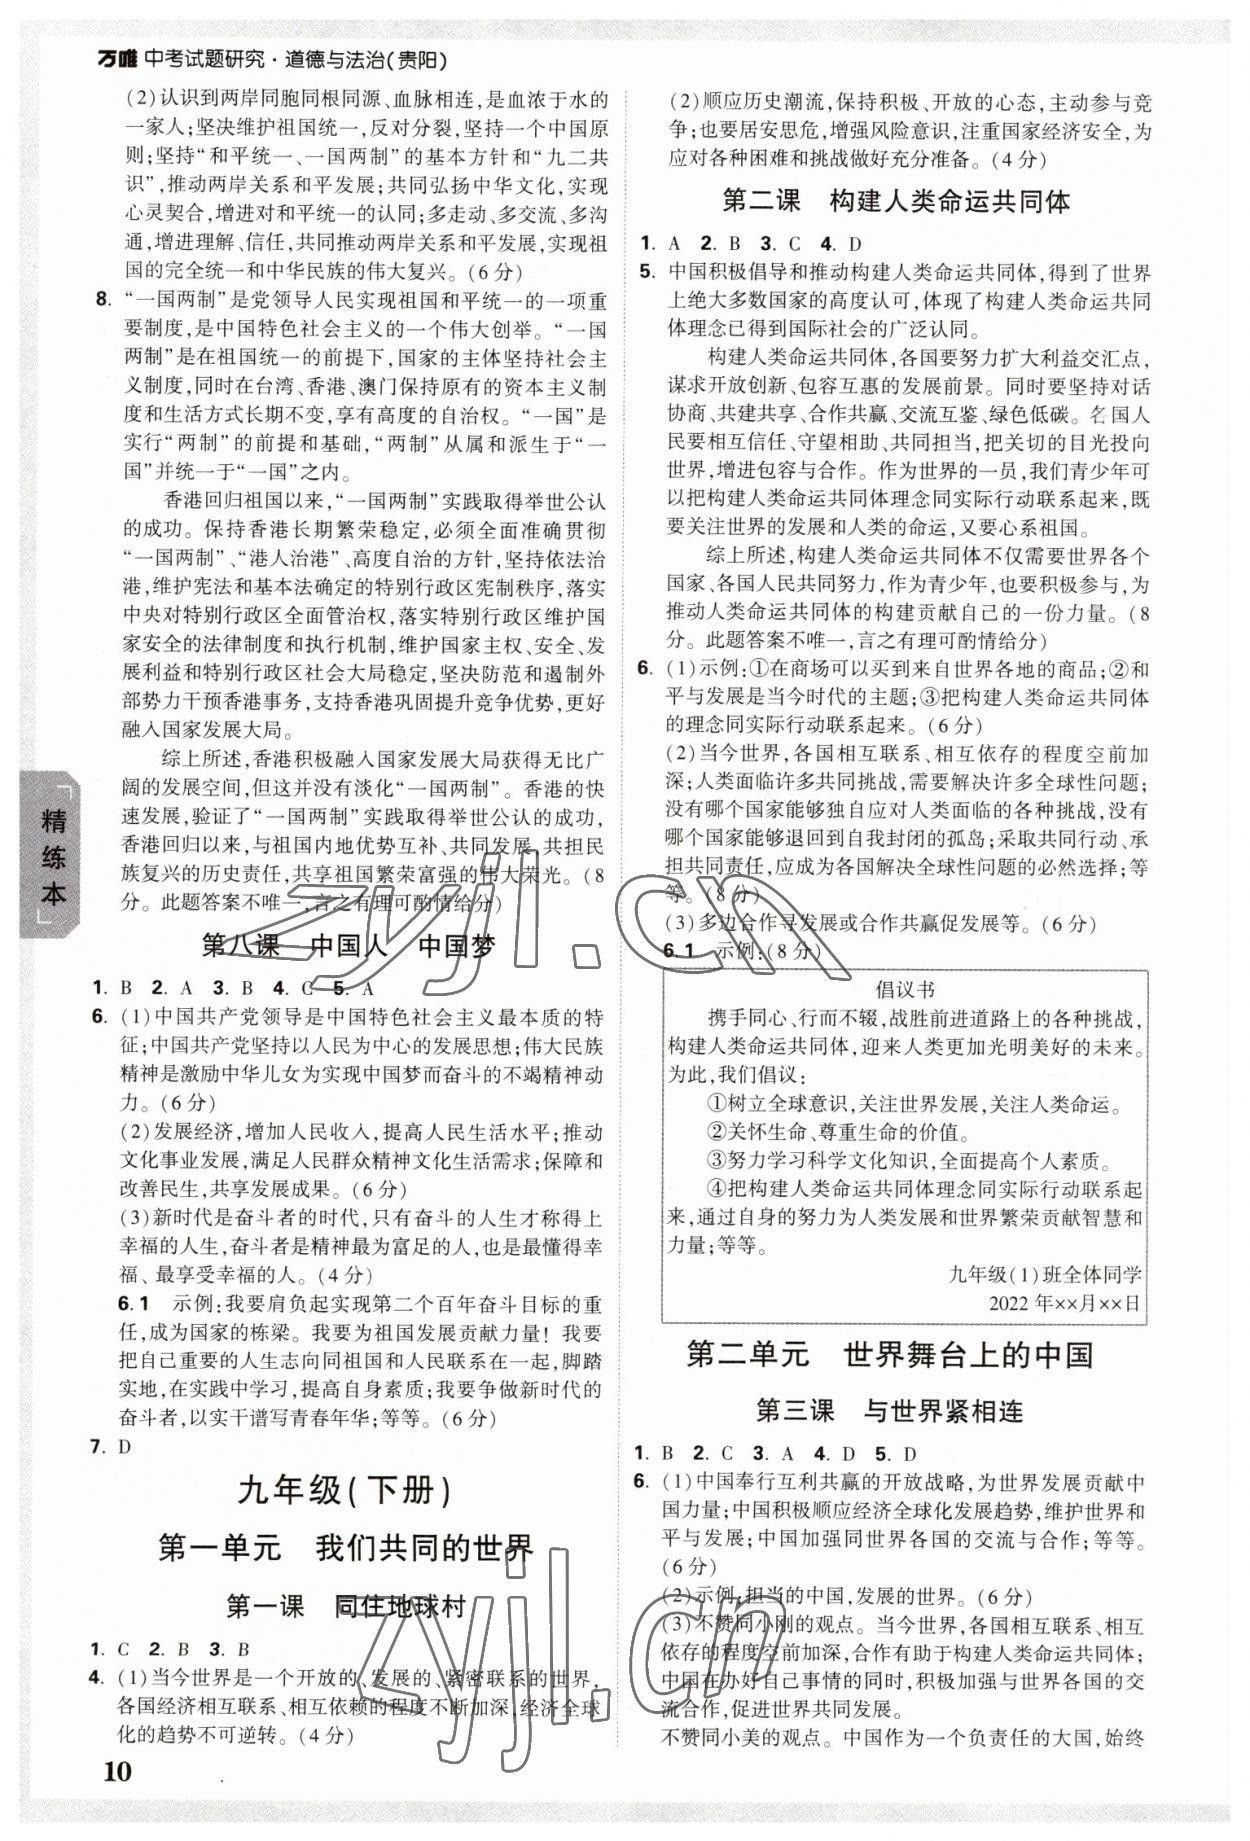 万唯 中考试题研究·道德与法治(贵阳)
(2)认识到两岸同胞同根同源、血脉相连,是血浓于水的
一家人;坚决维护祖国统一,反对分裂,坚持一个中国原
则;坚持“和平统一、一国两制”的基本方针和“九二共
识”,推动两岸关系和平发展;共同弘扬中华文化,实现
心灵契合,增进对和平统一的认同;多走动、多交流、多沟
通,增进理解、信任,共同推动两岸关系和平发展,实现祖
国的完全统一和中华民族的伟大复兴。(6分)
8. “一国两制”是党领导人民实现祖国和平统一的一项重
要制度,是中国特色社会主义的一个伟大创举。“一国
两制”是在祖国统一的前提下,国家的主体坚持社会主
义制度,同时在台湾、香港、澳门保持原有的资本主义制
度和生活方式长期不变,享有高度的自治权。“一国”是
实行“两制”的前提和基础,“两制”从属和派生于“一
国”并统一于“一国”之内。
香港回归祖国以来,“一国两制”实践取得举世公认
的成功。保持香港长期繁荣稳定,必须全面准确贯彻
“一国两制”、“港人治港”、高度自治的方针,坚持依法治
港,维护宪法和基本法确定的特别行政区宪制秩序,落实
中央对特别行政区全面管治权,落实特别行政区维护国
家安全的法律制度和执行机制,维护国家主权、安全、发
展利益和特别行政区社会大局稳定,坚决防范和遏制外
部势力干预香港事务,支持香港巩固提升竞争优势,更好
融入国家发展大局。
综上所述,香港积极融入国家发展大局获得无比广
阔的发展空间,但这并没有淡化“一国两制”。香港的快
速发展,验证了“一国两制”实践取得举世公认的成功,
香港回归以来,与祖国内地优势互补、共同发展,共担民
族复兴的历史责任,共享祖国繁荣富强的伟大荣光。(8
分。此题答案不唯一,言之有理可酌情给分)
第八课 中国人 中国梦
1. B 2. A 3. B 4. C 5. A
6. (1)中国共产党领导是中国特色社会主义最本质的特
征;中国共产党坚持以人民为中心的发展思想;伟大民族
精神是激励中华儿女为实现中国梦而奋斗的不竭精神动
力。(6分)
(2)发展经济,增加人民收入,提高人民生活水平;推动
文化事业发展,满足人民群众精神文化生活需求;保障和
改善民生,共享发展成果。(6分)
(3)新时代是奋斗者的时代,只有奋斗的人生才称得上
幸福的人生,奋斗者是精神最为富足的人,也是最懂得幸
福、最享受幸福的人。(4分)
6.1 示例:我要肩负起实现第二个百年奋斗目标的重
任,成为国家的栋梁。我要为祖国发展贡献力量！我要
把自己重要的人生志向同祖国和人民联系在一起,脚踏
实地,在实践中学习,提高自身素质;我要争做新时代的
奋斗者,以实干谱写青春年华;等等。(6分)
7. D
九年级(下册)
第一单元 我们共同的世界
第一课 同住地球村
1. C 2. B 3. B
4. (1)当今世界是一个开放的、发展的、紧密联系的世界,
各国经济相互联系、相互依赖的程度不断加深,经济全球
化的趋势不可逆转。(4分)
(2)顺应历史潮流,保持积极、开放的心态,主动参与竞
争;也要居安思危,增强风险意识,注重国家经济安全,为
应对各种困难和挑战做好充分准备。(4分)
第二课 构建人类命运共同体
1. A 2. B 3. C 4. D
5. 中国积极倡导和推动构建人类命运共同体,得到了世界
上绝大多数国家的高度认可,体现了构建人类命运共同
体理念已得到国际社会的广泛认同。
构建人类命运共同体,各国要努力扩大利益交汇点,
谋求开放创新、包容互惠的发展前景。同时要坚持对话
协商、共建共享、合作共赢、交流互鉴、绿色低碳。各国人
民要相互信任、守望相助、共同担当,把关切的目光投向
世界,增进包容与合作。作为世界的一员,我们青少年可
以把构建人类命运共同体理念同实际行动联系起来,既
要关注世界的发展和人类的命运,又要心系祖国。
综上所述,构建人类命运共同体不仅需要世界各个
国家、各国人民共同努力,作为青少年,也要积极参与,为
推动人类命运共同体的构建贡献自己的一份力量。(8
分。此题答案不唯一,言之有理可酌情给分)
6. (1)示例:①在商场可以买到来自世界各地的商品;②和
平与发展是当今时代的主题;③把构建人类命运共同体
的理念同实际行动联系起来。(6分)
(2)当今世界,各国相互联系、相互依存的程度空前加
深;人类面临许多共同挑战,需要解决许多全球性问题;
没有哪个国家能够独自应对人类面临的各种挑战,没有
哪个国家能够退回到自我封闭的孤岛;采取共同行动、承
担共同责任,应成为各国解决全球性问题的必然选择;等
等。(8分)
(3)多边合作寻发展或合作共赢促发展等。(6分)
6.1 示例:(8分)
倡议书
携手同心、行而不辍,战胜前进道路上的各种挑战,
构建人类命运共同体,迎来人类更加光明美好的未来。
为此,我们倡议:
①树立全球意识,关注世界发展,关注人类命运。
②关怀生命、尊重生命的价值。
③努力学习科学文化知识,全面提高个人素质。
④把构建人类命运共同体理念同实际行动联系起
来,通过自身的努力为人类发展和世界繁荣贡献智慧和
力量;等等。
九年级(1)班全体同学
2022年××月××日
第二单元 世界舞台上的中国
第三课 与世界紧相连
1. B 2. C 3. A 4. D 5. D
6. (1)中国奉行互利共赢的开放战略,为世界发展贡献中
国力量;中国积极顺应经济全球化发展趋势,维护世界和
平与发展;中国加强同世界各国的交流与合作;等等。
(6分)
(2)示例:担当的中国,发展的世界。(6分)
(3)不赞同小刚的观点。当今世界,各国相互联系、相互
依存的程度空前加深,合作有助于构建人类命运共同体;
中国在办好自己事情的同时,积极加强与世界各国的交
流合作,促进世界共同发展。
不赞同小美的观点。中国作为一个负责任的大国,始终
精练本
10
zyjl.cn
zyjl.cn